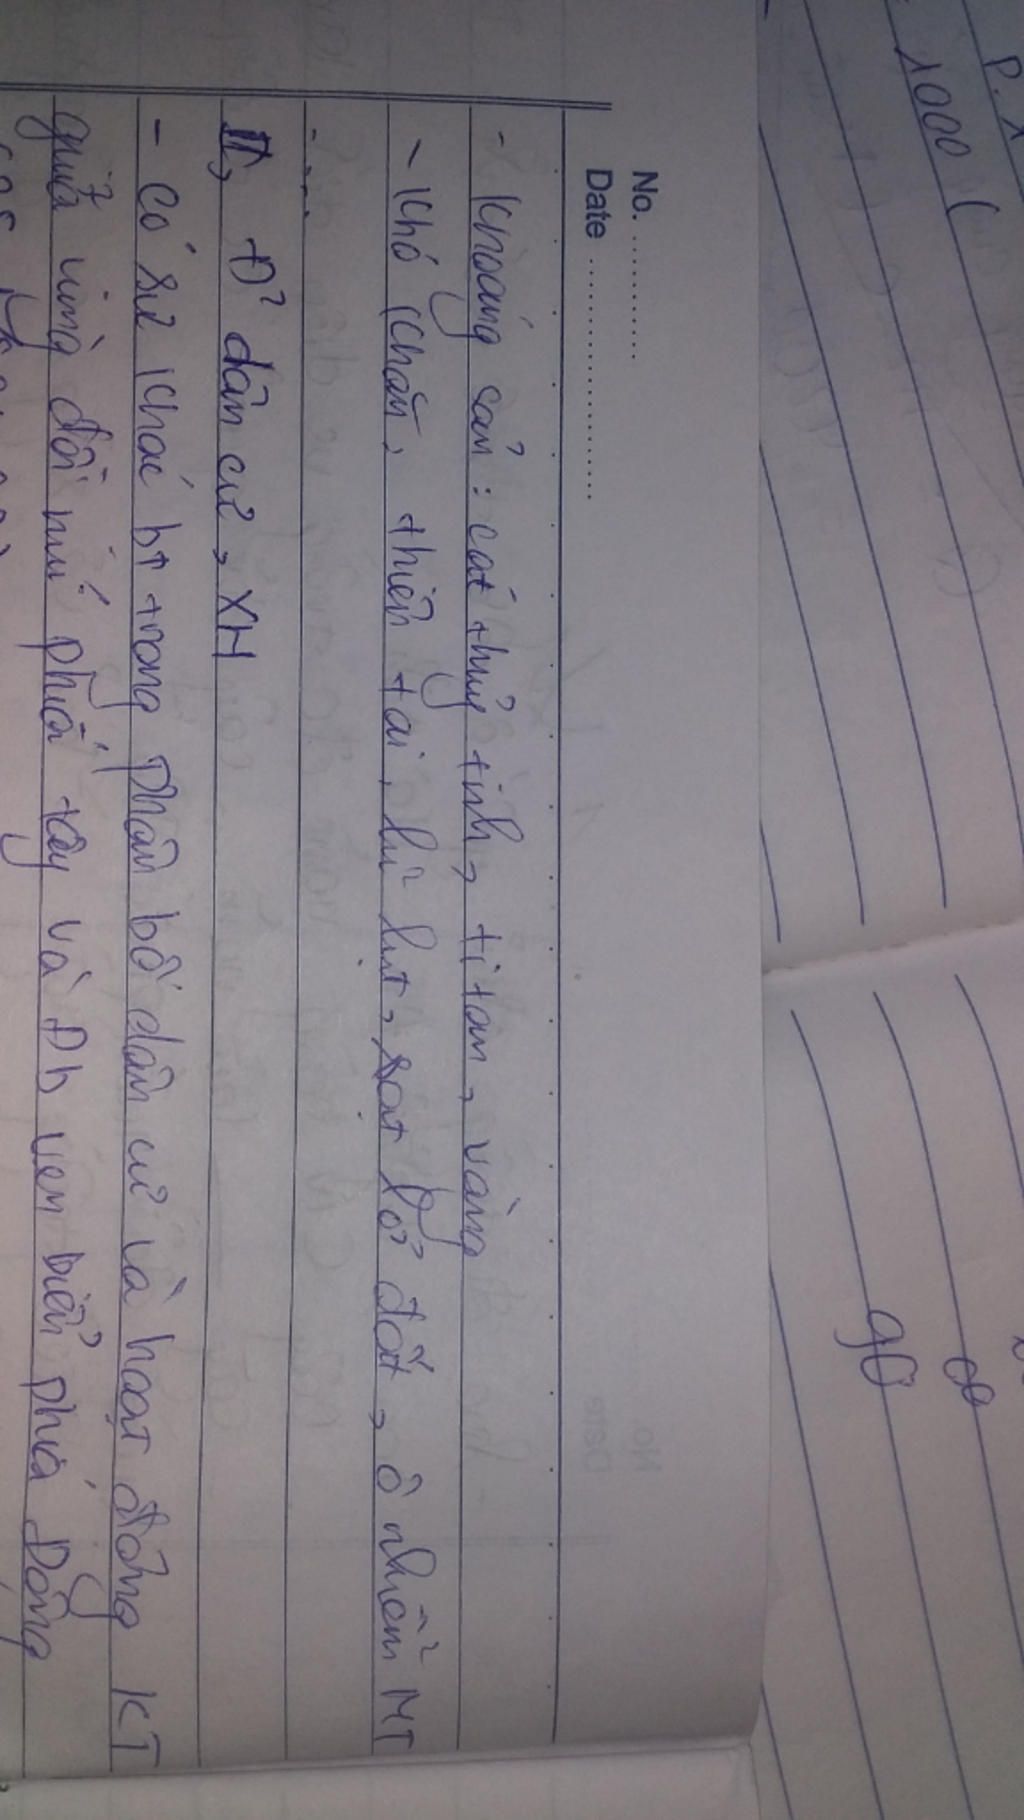 No. ...........
Date .....................
- Khoáng sản : cát thủy tinh, titan, vàng
- Khó khăn, thiên tai, lũ lụt, sạt lở đất, ô nhiễm MT
- ...
II, Đ² dân cư, XH
- Có sự khác bt trong phân bố dân cư và hoạt động KT
giữa vùng đồi núi phía tây và Đb ven biển phía Đông
P. x
1000 (
90